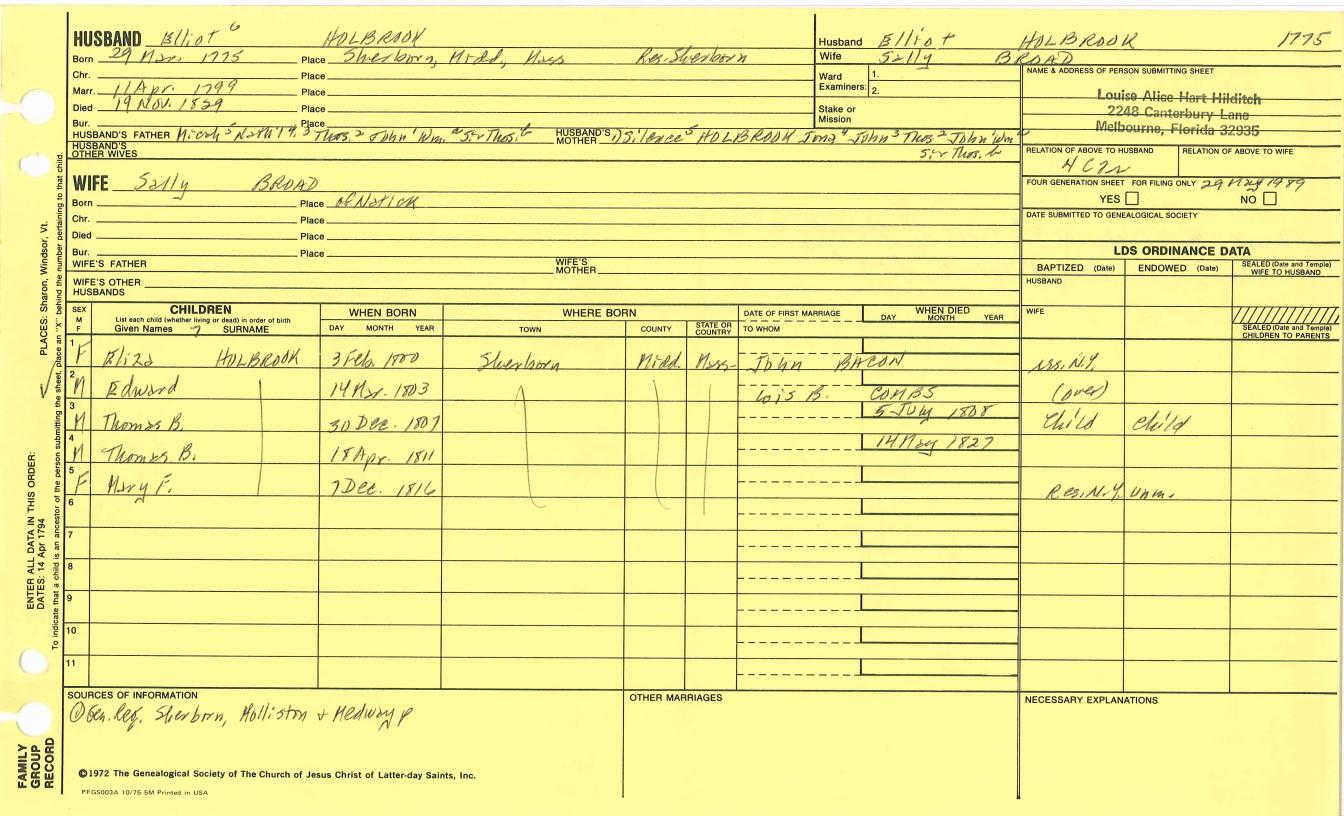 HUSBAND Elliot 6 HOLBROOK
Born 29 Mar. 1775 Place Sherborn, Midd, Mass Res. Sherborn
Chr. Place
Marr. 11 Apr. 1799 Place
Died 19 NOV. 1829 Place
Bur. Place
HUSBAND'S FATHER Micah 5 Nath'l 4, 3 Thos. 2 John 1 Wm. a Sir Thos. b HUSBAND'S MOTHER 1) Silence 5 HOLBROOK Jona 4 John 3 Thos 2 John 1 Wm a
Sir Thos. b
HUSBAND'S OTHER WIVES
Husband Elliot HOLBROOK 1775
Wife Sally BROAD
Ward Examiners: 1.
2.
Stake or Mission
NAME & ADDRESS OF PERSON SUBMITTING SHEET
Louise Alice Hart Hilditch
2248 Canterbury Lane
Melbourne, Florida 32935
RELATION OF ABOVE TO HUSBAND RELATION OF ABOVE TO WIFE
FOUR GENERATION SHEET FOR FILING ONLY 29 May 1989
YES NO
DATE SUBMITTED TO GENEALOGICAL SOCIETY
WIFE Sally BROAD
Born Place of Natick
Chr. Place
Died Place
Bur. Place
WIFE'S FATHER WIFE'S MOTHER
WIFE'S OTHER HUSBANDS
LDS ORDINANCE DATA
BAPTIZED (Date) ENDOWED (Date) SEALED (Date and Temple) WIFE TO HUSBAND
HUSBAND
WIFE
SEALED (Date and Temple) CHILDREN TO PARENTS
SEX M F
CHILDREN
List each child (whether living or dead) in order of birth
Given Names SURNAME
WHEN BORN
DAY MONTH YEAR
WHERE BORN
TOWN COUNTY STATE OR COUNTRY
DATE OF FIRST MARRIAGE
TO WHOM
WHEN DIED
DAY MONTH YEAR
1 F Eliza HOLBROOK 3 Feb. 1800 Sherborn Midd. Mass- John BACON res. N.Y.
2 M Edward 14 Mar. 1803 Lois B. COMBS (over)
3 M Thomas B. 30 Dec. 1807 5 July 1808 Child Child
4 M Thomas B. 18 Apr. 1811 14 May 1827
5 F Mary F. 7 Dec. 1816 Res. N.Y. unm.
6
7
8
9
10
11
SOURCES OF INFORMATION
① Gen. Reg. Sherborn, Holliston + Medway p
OTHER MARRIAGES
NECESSARY EXPLANATIONS
©1972 The Genealogical Society of The Church of Jesus Christ of Latter-day Saints, Inc.
PFGS003A 10/75 5M Printed in USA
FAMILY GROUP RECORD
ENTER ALL DATA IN THIS ORDER:
DATES: 14 Apr 1794
PLACES: Sharon, Windsor, Vt.
To indicate that a child is an ancestor of the person submitting the sheet, place an "X" behind the number pertaining to that child.